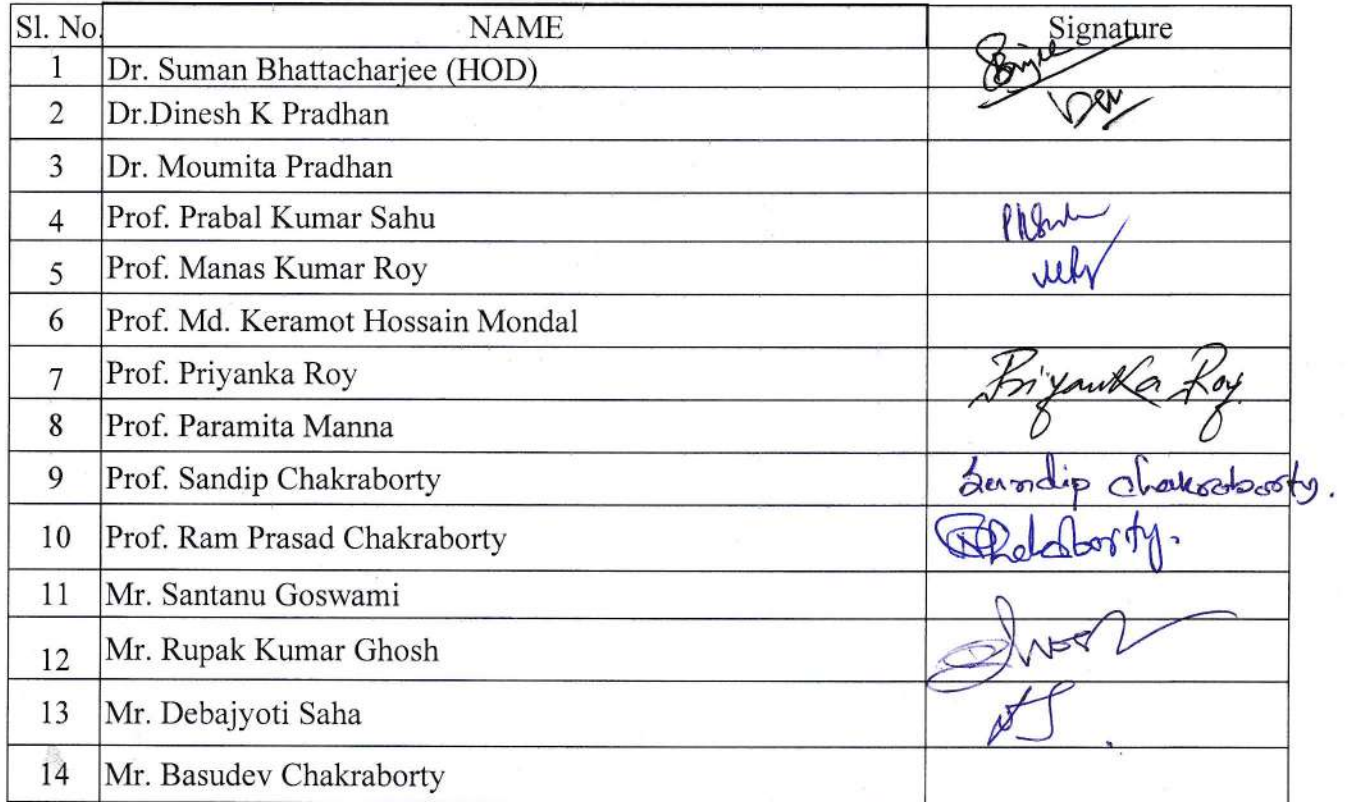 Sl. No. NAME Signature
1 Dr. Suman Bhattacharjee (HOD)
2 Dr.Dinesh K Pradhan
3 Dr. Moumita Pradhan
4 Prof. Prabal Kumar Sahu
5 Prof. Manas Kumar Roy
6 Prof. Md. Keramot Hossain Mondal
7 Prof. Priyanka Roy Priyanka Roy
8 Prof. Paramita Manna
9 Prof. Sandip Chakraborty Sandip Chakraborty.
10 Prof. Ram Prasad Chakraborty
11 Mr. Santanu Goswami
12 Mr. Rupak Kumar Ghosh
13 Mr. Debajyoti Saha
14 Mr. Basudev Chakraborty